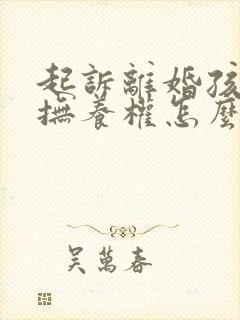 起訴離婚孩
撫養權怎麼
吳萬春